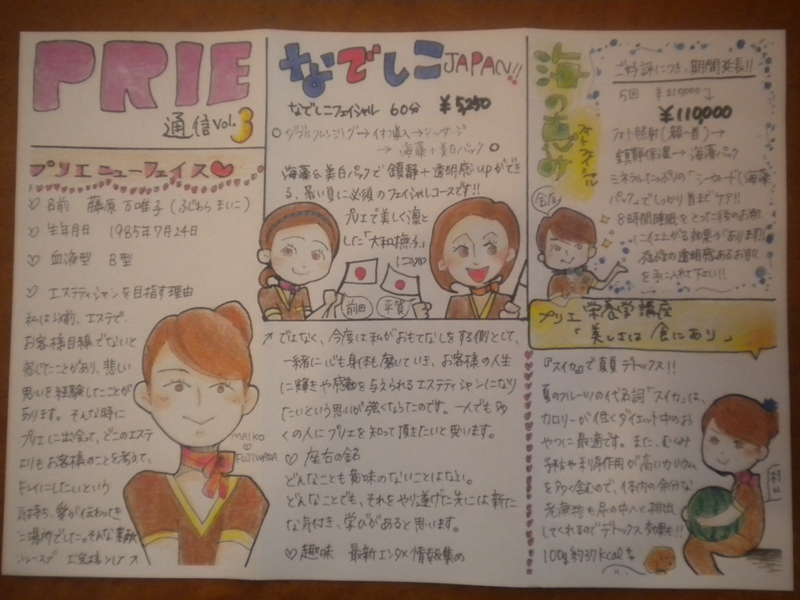 PRIE
通信 Vol.3
プリエニューフェイス♡
♡ 名前 藤原 万唯子 (ふじわら まいこ)
♡ 生年月日 1985年7月24日
♡ 血液型 B型
♡ エステティシャンを目指す理由
私は以前、エステで
お客様目線でないと
感じたことがあり、悲しい
思いを経験したことが
あります。そんな時に
プリエに出会って、どこのエステ
よりもお客様のことを考えて、
キレイにしたいという
気持ち、愛が伝わってき
た場所でした。そんな素敵
MAIKO
♡
FUJIWARA
なでしこJAPAN!!
なでしこフェイシャル 60分 ¥5,250
○ダブルクレンジング→イオン導入→マッサージ
→海藻+美白パック○
海藻&美白パックで鎮静+透明感upができ
る、暑い夏に必須のフェイシャルコースです!!
プリエで美しく凛と
した「大和撫子」
に
前田
平賀
↗ではなく、今度は私がおもてなしをする側として、
一緒に心も身体も磨いていき、お客様の人生
に輝きや感動を与えられるエステティシャンになり
たいという思いが強くなったのです。一人でも多
くの人にプリエを知って頂きたいと思います。
♡ 座右の銘
どんなことも意味のないことはない。
どんなことでも、それをやり遂げた先には新た
な気付き、学びがあると思います。
♡ 趣味 最新エンタメ情報集め
海の恵み
フォトフェイシャル
ご好評につき、期間延長!!
5回 ¥210000
¥110000
フォト照射(顔→首)→
鎮静保湿→海藻パック
ミネラルたっぷりの「シーウィード(海藻
パック」でしっかり首までケア!!
8時間睡眠をとった後のお肌
に仕上がる効果があります!!
透明感あるお肌
を手に入れて下さい!!
プリエ 栄養学講座
「美しさは 食にあり」
『スイカ』で夏デトックス!!
夏のフルーツの代名詞「スイカ」は、
カロリーが低くダイエット中のお
やつに最適です。また、むくみ
予防や利尿作用が高いカリウム
を多く含むので、体内の余分な
老廃物も尿の中へと排出
してくれるのでデトックス効果も!!
100g約37kcal